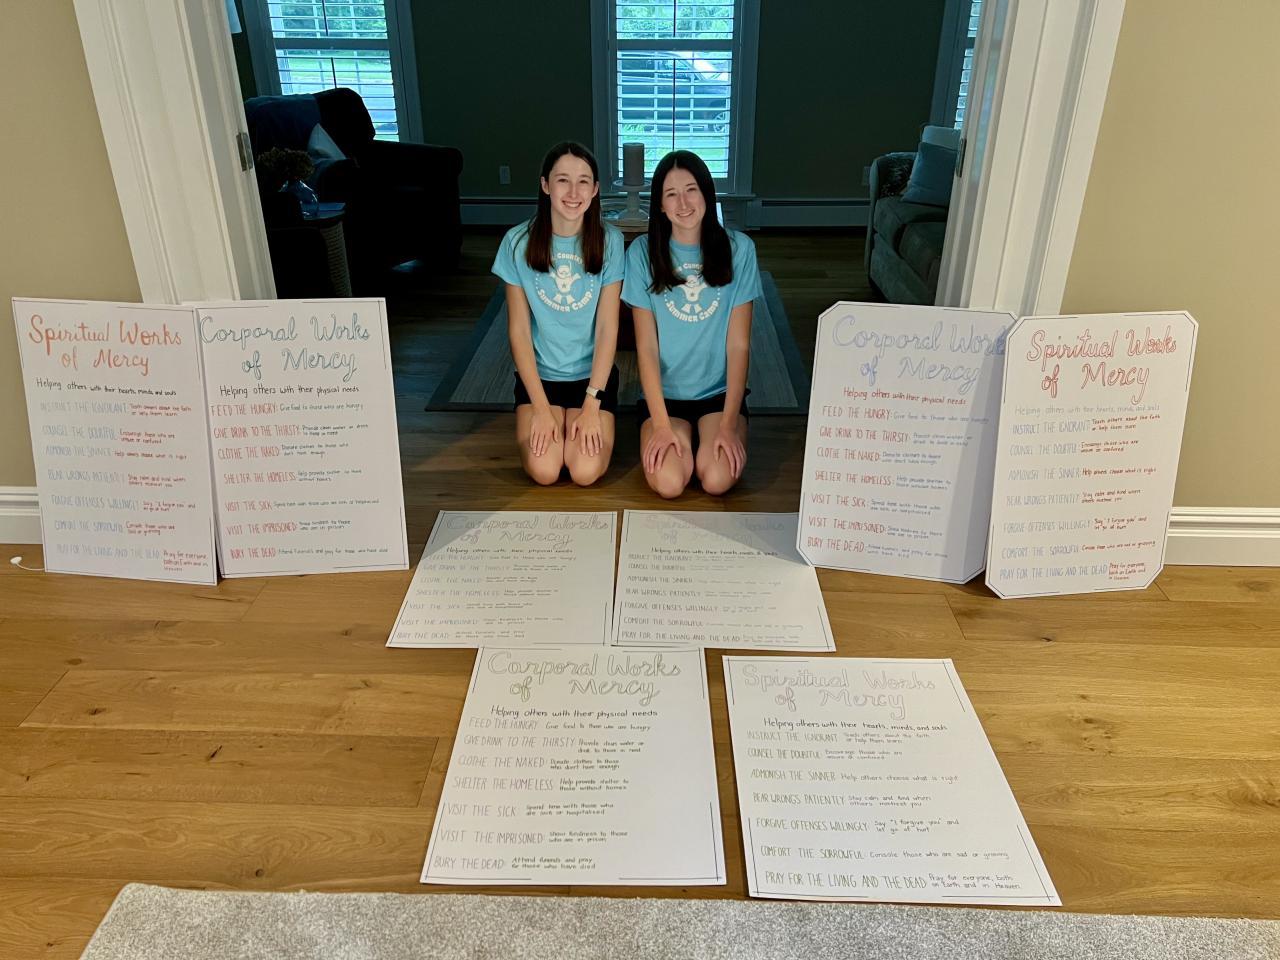 Spiritual Works
of Mercy
Helping others with their hearts, minds and souls
INSTRUCT THE IGNORANT: Teach others about the faith
or help them learn
COUNSEL THE DOUBTFUL: Encourage those who are
unsure or confused
ADMONISH THE SINNER: Help others choose what is right
BEAR WRONGS PATIENTLY: Stay calm and kind when
others mistreat you
FORGIVE OFFENSES WILLINGLY: Say "I forgive you" and
let go of hurt
COMFORT THE SORROWFUL: Console those who are
sad or grieving
PRAY FOR THE LIVING AND THE DEAD: Pray for everyone,
both on Earth and in
Heaven
Corporal Works
of Mercy
Helping others with their physical needs
FEED THE HUNGRY: Give food to those who are hungry
GIVE DRINK TO THE THIRSTY: Provide clean water or drink
to those in need
CLOTHE THE NAKED: Donate clothes to those who
don't have enough
SHELTER THE HOMELESS: Help provide shelter to those
without homes
VISIT THE SICK: Spend time with those who are sick or hospitalized
VISIT THE IMPRISONED: Show kindness to those
who are in prison
BURY THE DEAD: Attend funerals and pray for those who have died
Country
Summer Camp
Country
Summer Camp
Corporal Works
of Mercy
Helping others with their physical needs
FEED THE HUNGRY: Give food to those who are hungry
GIVE DRINK TO THE THIRSTY: Provide clean water or
drink to those in need
CLOTHE THE NAKED: Donate clothes to those
who don't have enough
SHELTER THE HOMELESS: Help provide shelter to
those without homes
VISIT THE SICK: Spend time with those who
are sick or hospitalized
VISIT THE IMPRISONED: Show kindness to those
who are in prison
BURY THE DEAD: Attend funerals and pray for those
who have died
Spiritual Works
of Mercy
Helping others with their hearts, minds, and souls
INSTRUCT THE IGNORANT: Teach others about the faith
or help them learn
COUNSEL THE DOUBTFUL: Encourage those who are
unsure or confused
ADMONISH THE SINNER: Help others choose what is right
BEAR WRONGS PATIENTLY: Stay calm and kind when
others mistreat you
FORGIVE OFFENSES WILLINGLY: Say "I forgive you" and
let go of hurt
COMFORT THE SORROWFUL: Console those who are sad or grieving
PRAY FOR THE LIVING AND THE DEAD: Pray for everyone,
both on Earth and in
Heaven
Corporal Works
of Mercy
Helping others with their physical needs
FEED THE HUNGRY: Give food to those who are hungry
GIVE DRINK TO THE THIRSTY: Provide clean water or
drink to those in need
CLOTHE THE NAKED: Donate clothes to those
who don't have enough
SHELTER THE HOMELESS: Help provide shelter to
those without homes
VISIT THE SICK: Spend time with those who
are sick or hospitalized
VISIT THE IMPRISONED: Show kindness to those who
are in prison
BURY THE DEAD: Attend funerals and pray
for those who have died
Spiritual Works
of Mercy
Helping others with their hearts, minds, and souls
INSTRUCT THE IGNORANT:
COUNSEL THE DOUBTFUL:
ADMONISH THE SINNER: Help others choose what is right
BEAR WRONGS PATIENTLY:
FORGIVE OFFENSES WILLINGLY:
COMFORT THE SORROWFUL:
PRAY FOR THE LIVING AND THE DEAD:
Corporal Works
of Mercy
Helping others with their physical needs
FEED THE HUNGRY: Give food to those who are hungry
GIVE DRINK TO THE THIRSTY: Provide clean water or
drink to those in need
CLOTHE THE NAKED: Donate clothes to those
who don't have enough
SHELTER THE HOMELESS: Help provide shelter to
those without homes
VISIT THE SICK: Spend time with those who
are sick or hospitalized
VISIT THE IMPRISONED: Show kindness to those
who are in prison
BURY THE DEAD: Attend funerals and pray
for those who have died
Spiritual Works
of Mercy
Helping others with their hearts, minds, and souls
INSTRUCT THE IGNORANT: Teach others about the faith
or help them learn
COUNSEL THE DOUBTFUL: Encourage those who are
unsure or confused
ADMONISH THE SINNER: Help others choose what is right
BEAR WRONGS PATIENTLY: Stay calm and kind when
others mistreat you
FORGIVE OFFENSES WILLINGLY: Say "I forgive you" and
let go of hurt
COMFORT THE SORROWFUL: Console those who are sad or grieving
PRAY FOR THE LIVING AND THE DEAD: Pray for everyone, both
on Earth and in Heaven